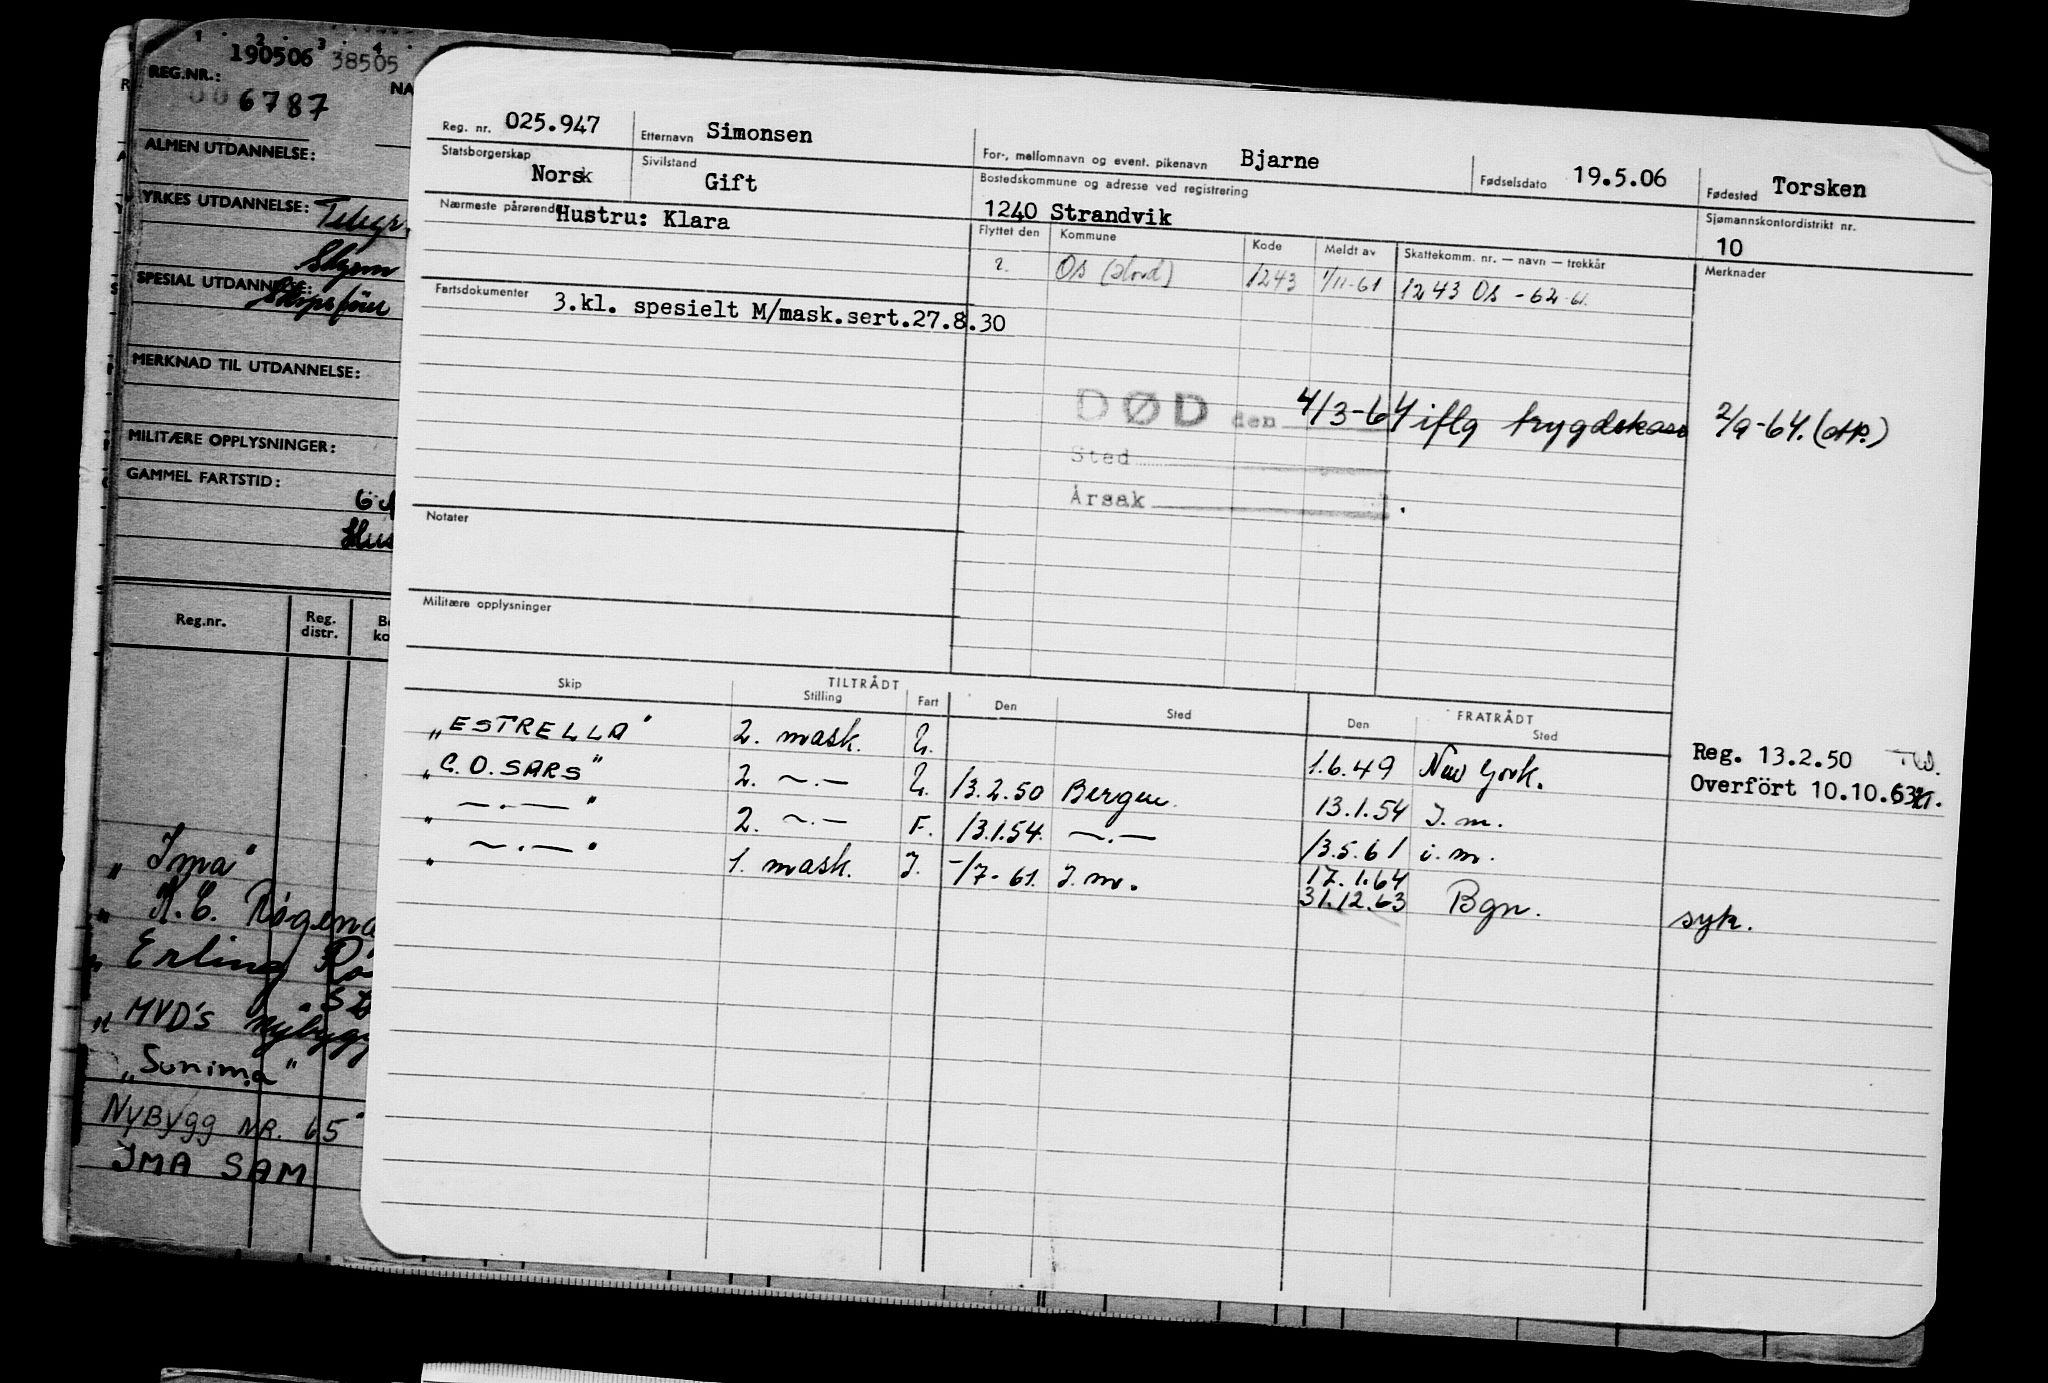 1 · 2 · 3 · 4 ·
190506 38505
REG.NR.: NA
006787
ALMEN UTDANNELSE:
YRKES UTDANNELSE: Telegr.
SPESIAL UTDANNELSE:
MERKNAD TIL UTDANNELSE:
MILITÆRE OPPLYSNINGER:
GAMMEL FARTSTID:
Reg.nr. Reg. distr.
„Ima"
„Erling
„MVD's Nybygg
„Sunima"
NYBYGG NR. 65
IMA SAM
Reg. nr. 025.947 Etternavn Simonsen For-, mellomnavn og event. pikenavn Bjarne Fødselsdato 19.5.06 Fødested Torsken
Statsborgerskap Norsk Sivilstand Gift Bostedskommune og adresse ved registrering 1240 Strandvik Sjømannskontordistrikt nr. 10
Nærmeste pårørende Hustru: Klara
Flyttet den Kommune Kode Meldt av Skattekomm. nr. — navn — trekkår Merknader
?. Os (Hord) 1243 1/11-61 1243 Os -62-61.
Fartsdokumenter 3.kl. spesielt M/mask.sert.27.8.30
DØD den 4/3-64 iflg trygdekasse 2/9-64.
Sted
Årsak
Notater
Militære opplysninger
TILTRÅDT FRATRÅDT
Skip Stilling Fart Den Sted Den Sted
„ESTRELLA" 2. mask. U. 1.6.49 New York. Reg. 13.2.50
„G.O.SARS" 2. —.— U. 13.2.50 Bergen. 13.1.54 I.m. Overfört 10.10.63
„ —.— " 2. —.— F. 13.1.54. —.— 13.5.61 i.m.
„ —.— " 1. mask. I. -/7-61. I.m. 17.1.64
31.12.63 Bgn. syk.